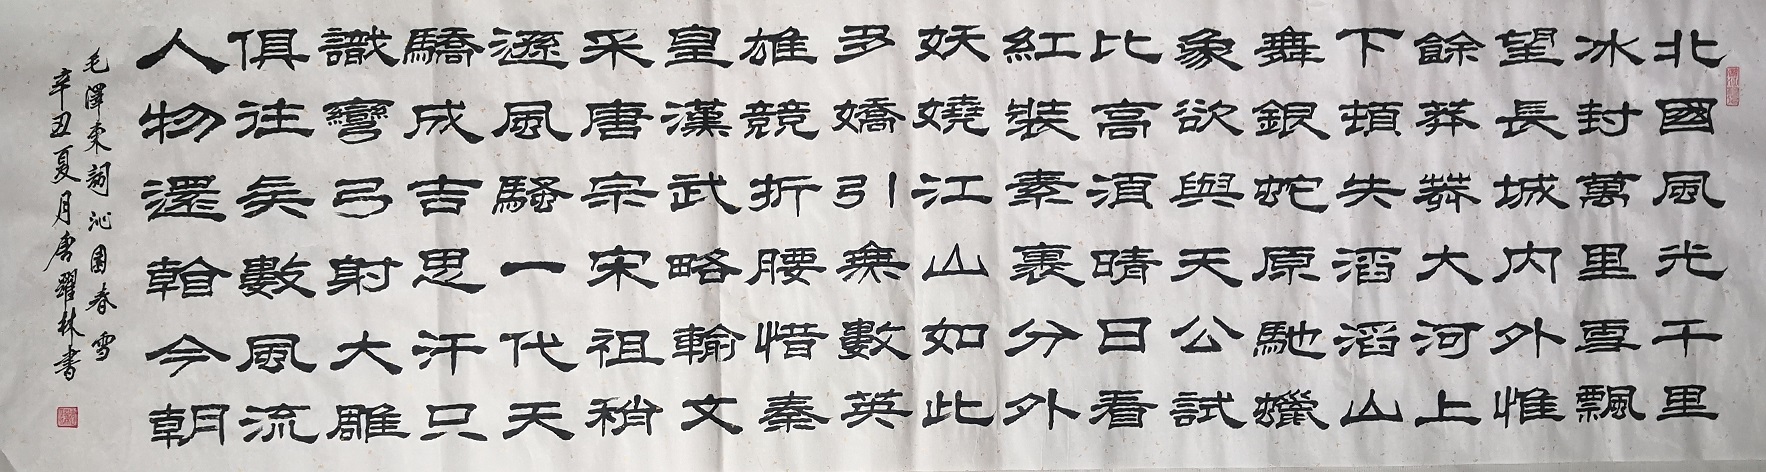 北國風光千里
冰封萬里雪飄
望長城內外惟
餘莽莽大河上
下頓失滔滔山
舞銀蛇原馳蠟
象欲與天公試
比高須晴日看
紅裝素裹分外
妖嬈江山如此
多嬌引無數英
雄競折腰惜秦
皇漢武略輸文
采唐宗宋祖稍
遜風騷一代天
驕成吉思汗只
識彎弓射大雕
俱往矣數風流
人物還看今朝
毛澤東詞沁園春雪
辛丑夏月唐耀林書